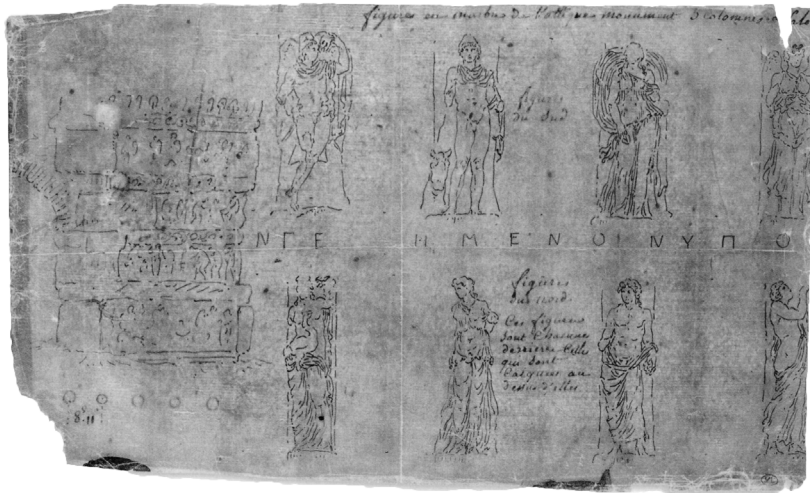 figures en marbre de l'attique monument 5 colonnes
figures
du sud
Ν Γ Ε Η Μ Ε Ν Ο Ι Ν Υ Π Ο
figures
du nord.
Ces figures
sont chacune
derriere celles
qui sont
calquées au
dessus d'elles
8.11